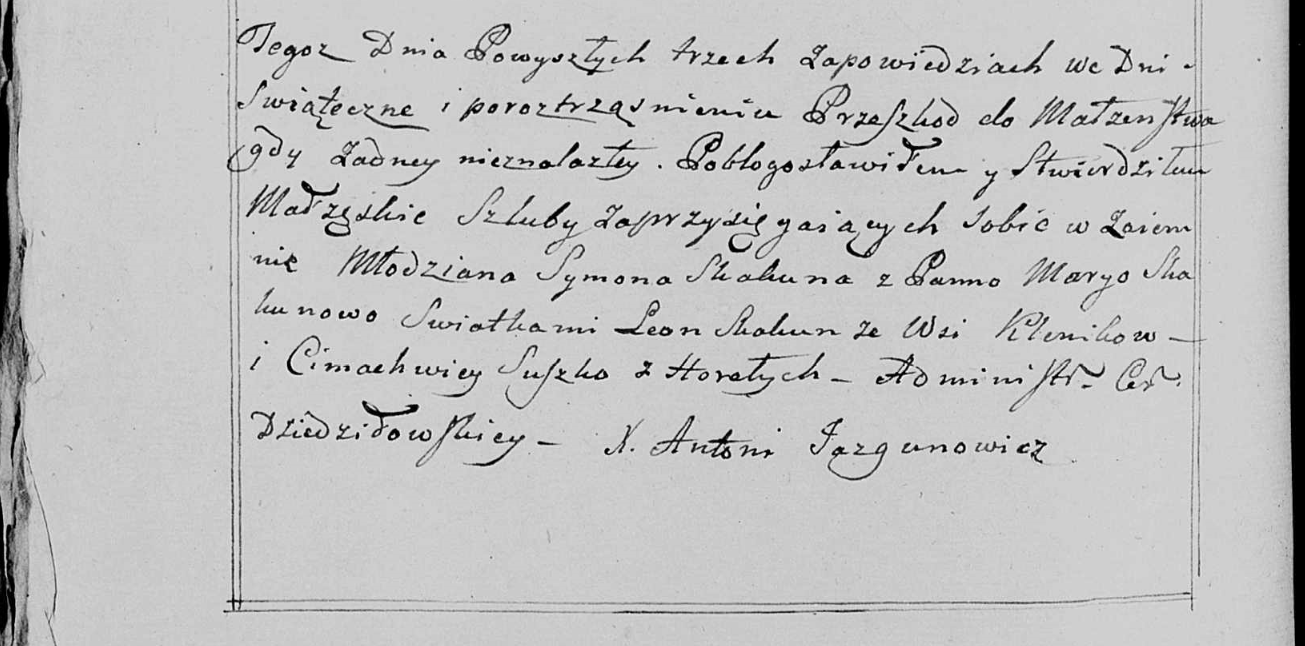 Tegoz Dnia Powyszłych trzech Zapowiedziach we Dni
Swiąteczne i poroztrząsnieniu Przeszkod do Małzenstwa
gdy Zadney nieznalazłey. Pobłogosławiłem y Stwierdziłem
Małzęskie Szluby Zaprzysięgaiących sobie w Zaiem
nie Młodziana Symona Skakuna z Panno Maryo Ska
kunowo Swiatkami Leon Skakun ze Wsi Klenikow —
i Cimachwiey Suszko z Horełych — Administr. Cer.
Dziedziłowskiey — X. Antoni Jazgunowicz